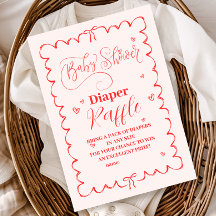 Baby Shower
Diaper
Raffle
BRING A PACK OF DIAPERS
IN ANY SIZE
FOR YOUR CHANCE TO WIN
AN EXCELLENT PRIZE!